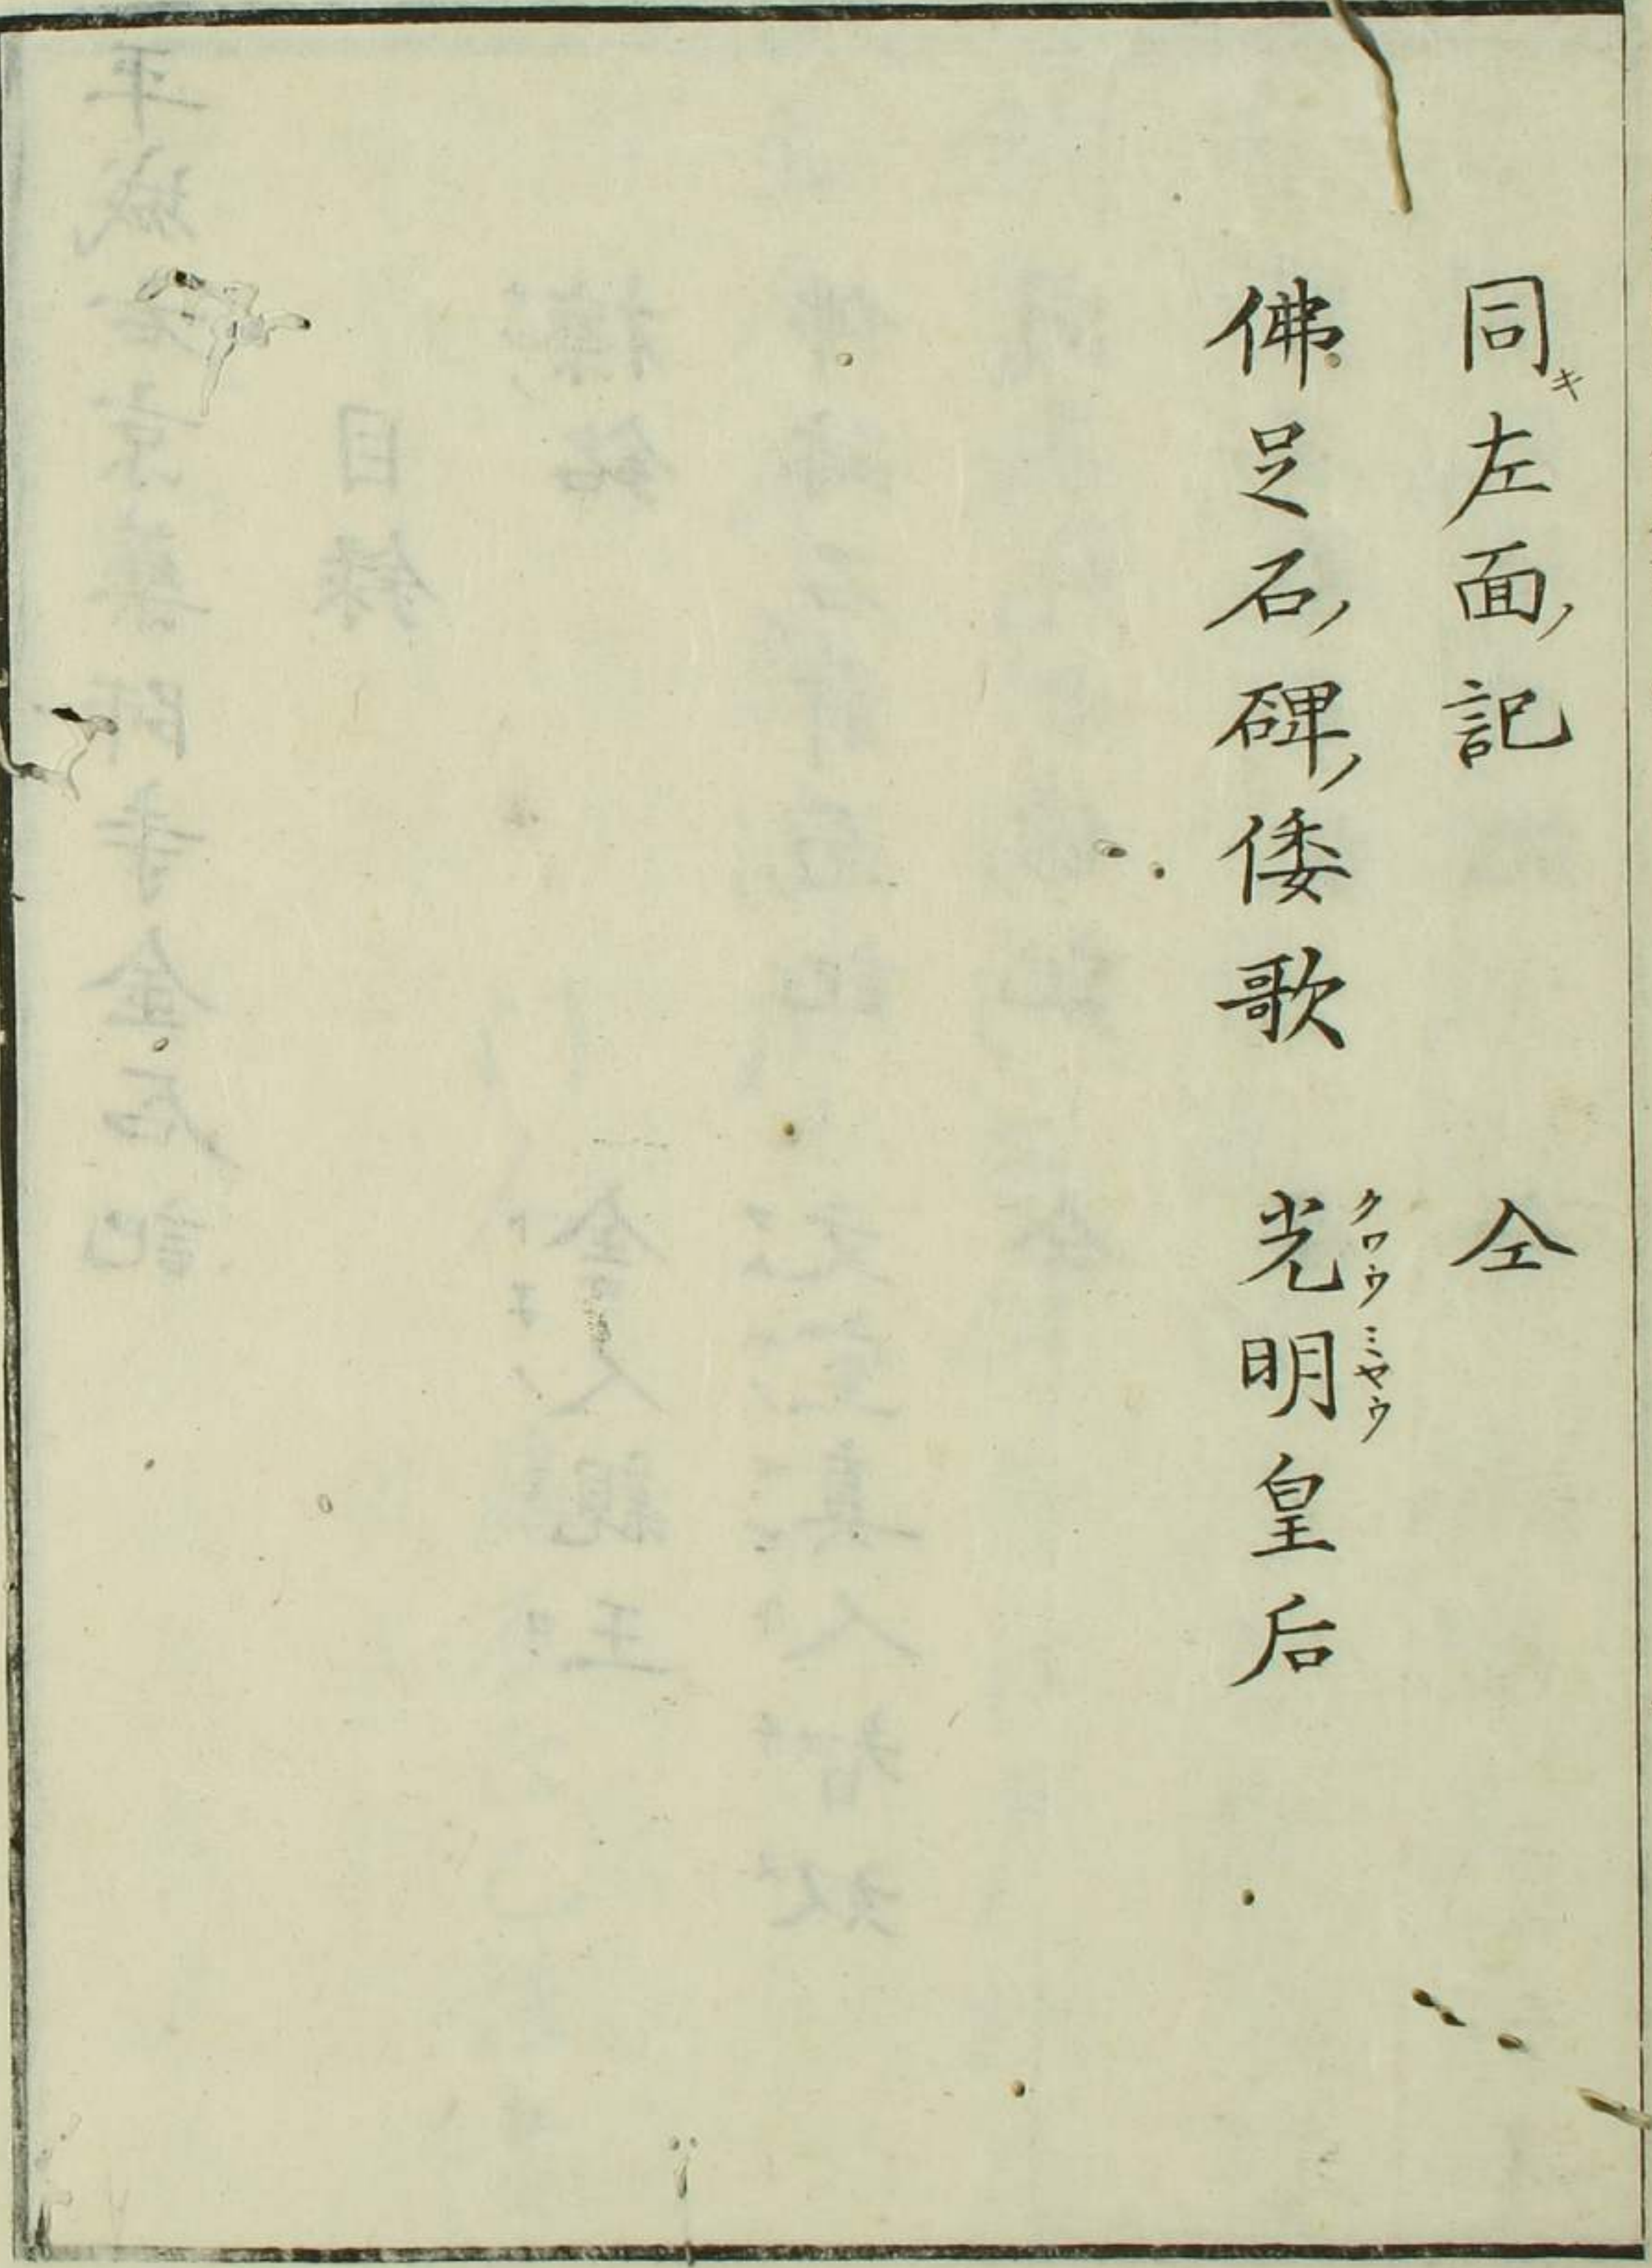 同キ左面ノ記 仝
佛足石ノ碑ノ倭歌 光明皇后
クワウミヤウ